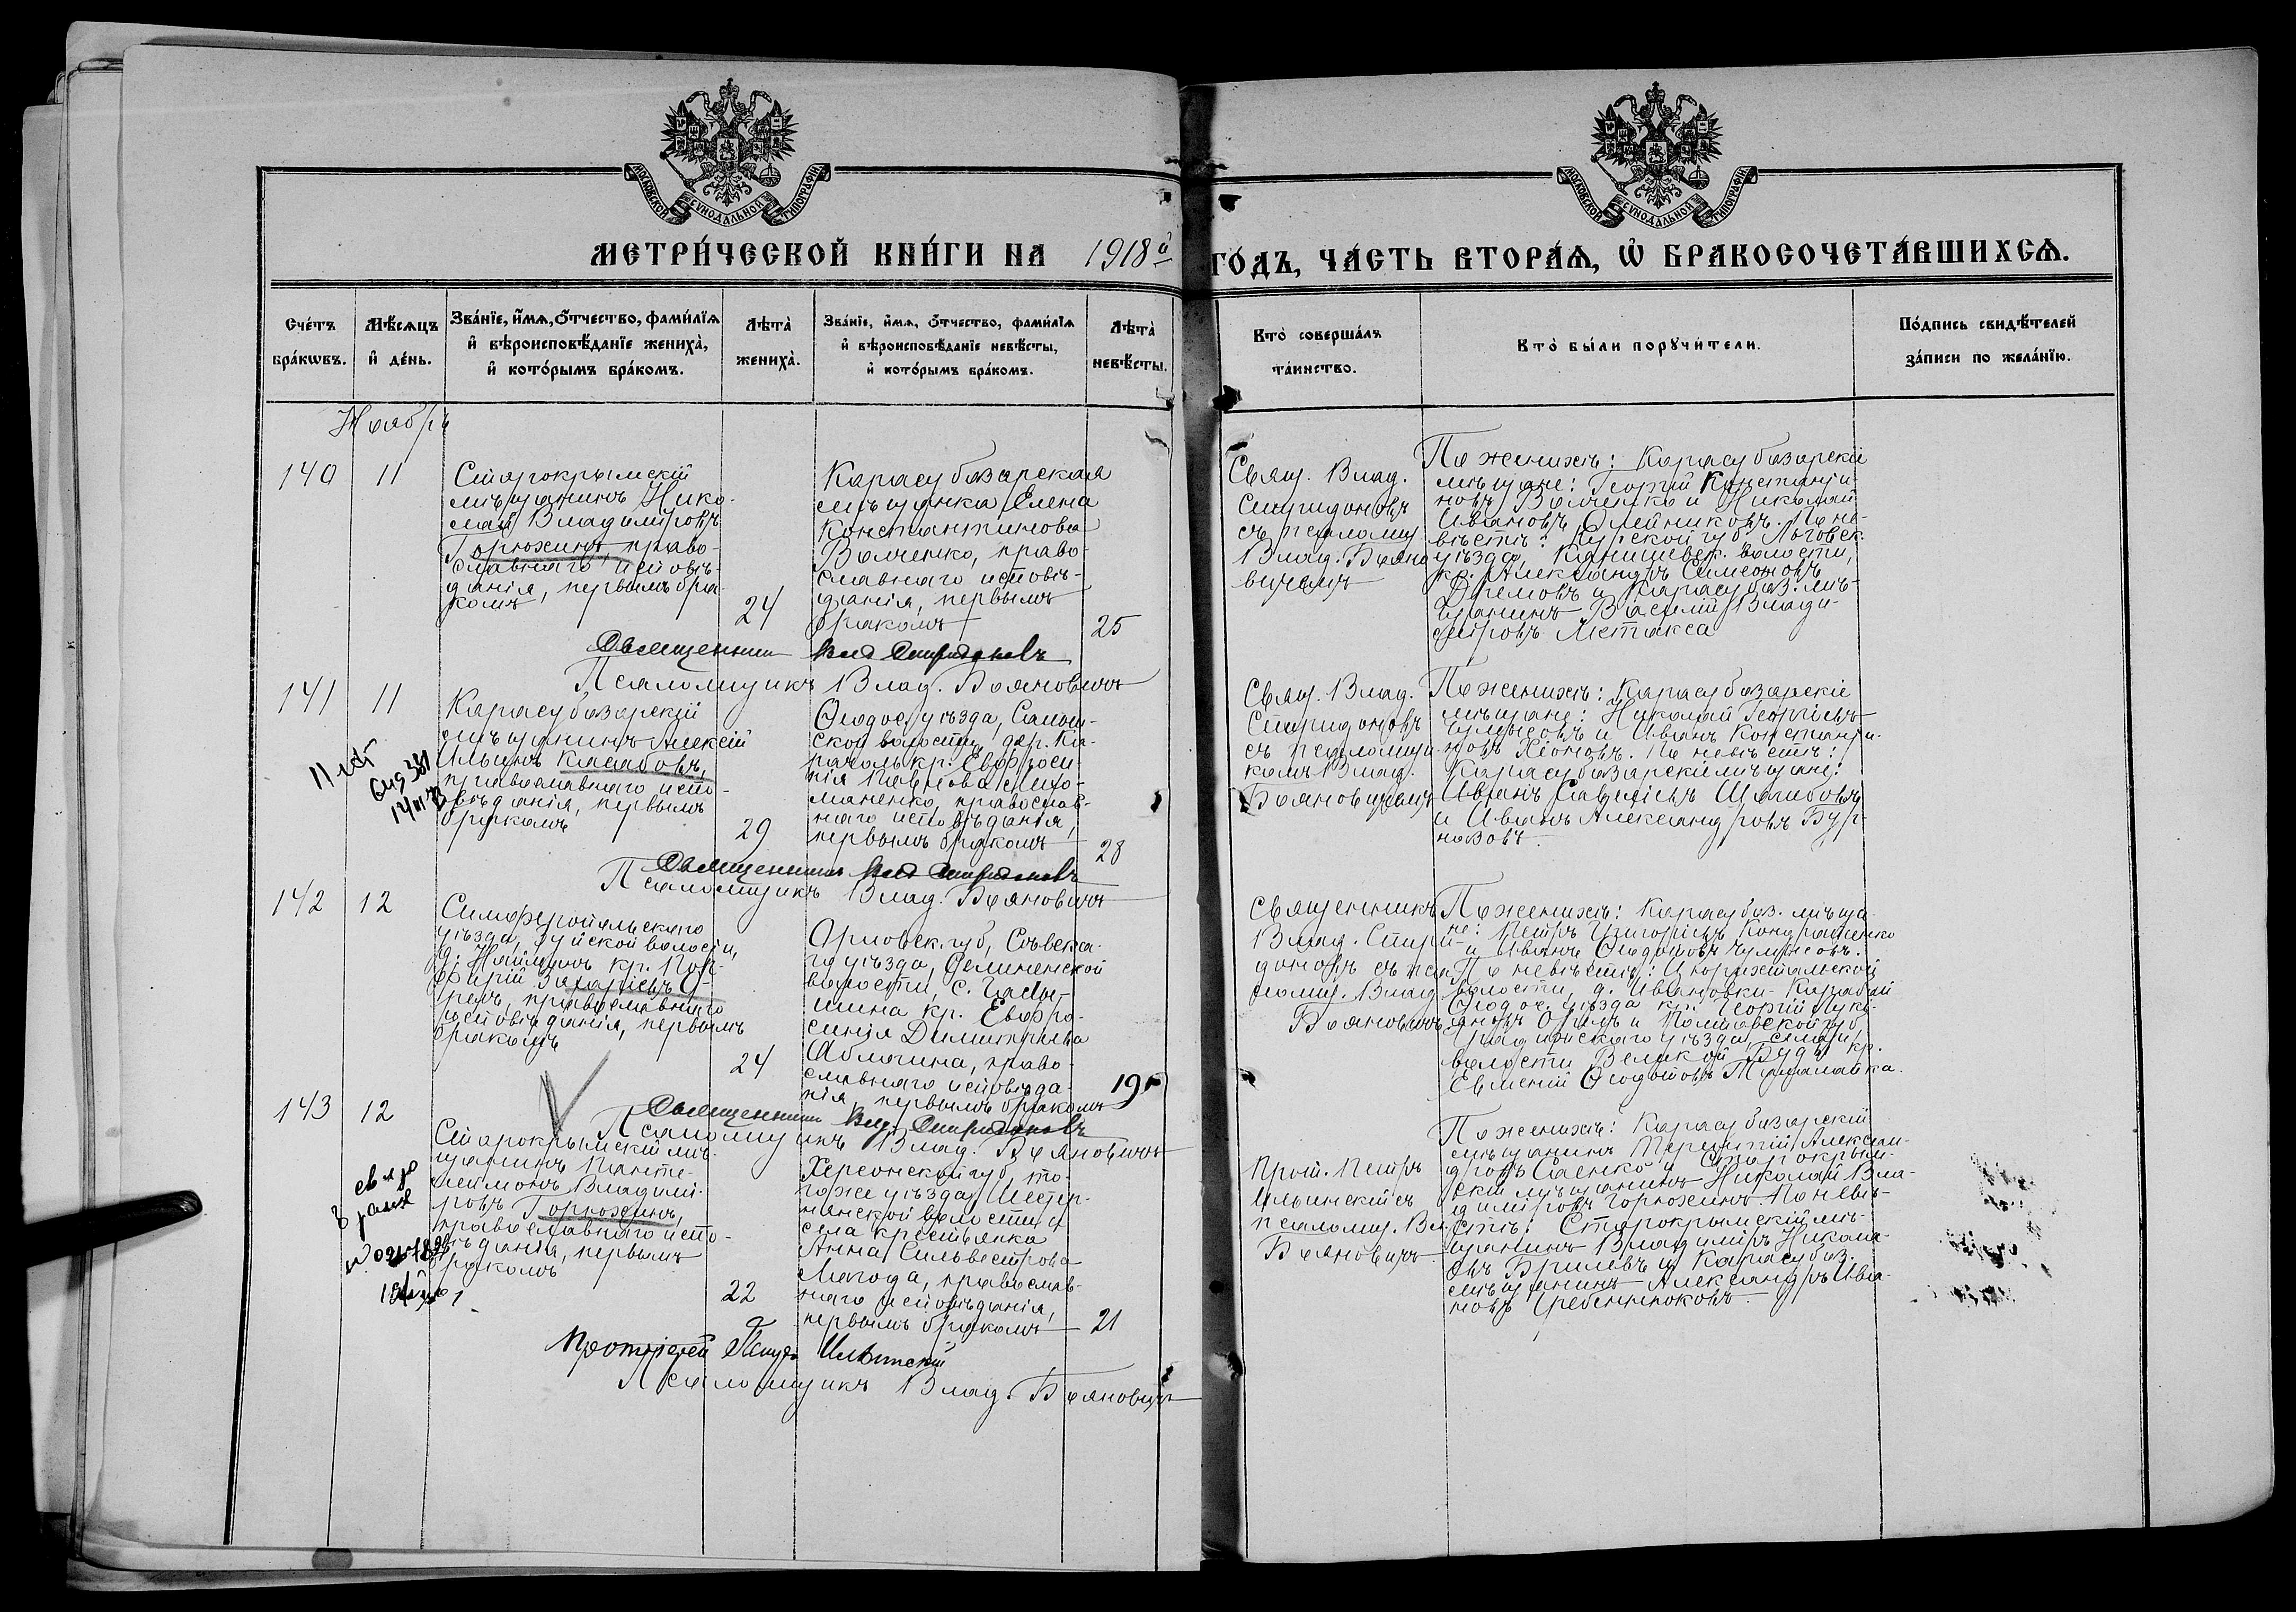 МОСКОВСКОЙ СѴНОДАЛЬНОЙ ТИПОГРАФІИ
МОСКОВСКОЙ СѴНОДАЛЬНОЙ ТИПОГРАФІИ
МЕТРИ́ЧЕСКОЙ КНИ́ГИ НА 1918й ГО́ДЪ, ЧА́СТЬ ВТОРА́Ѧ, Ѡ҆ БРАКОСОЧЕТА́ВШИХСѦ.
Сче́тъ бра́кѡвъ.
Мѣ́сѧцъ и҆ де́нь.
Зва́нїе, и҆́мѧ, ѻ҆́тчество, фами́лїѧ
и҆ вѣроисповѣ́данїе жениха̀,
и҆ кото́рымъ бра́комъ.
Лѣта̀ жениха̀.
Зва́нїе, и҆́мѧ, ѻ҆́тчество, фами́лїѧ
и҆ вѣроисповѣ́данїе невѣ́сты,
и҆ кото́рымъ бра́комъ.
Лѣта̀ невѣ́сты.
Кто̀ соверша́лъ
та́инство.
Кто̀ бы́ли порꙋчи́тели.
По́дпись свидѣ́телей
за́писи по жела́нїю.
Ноябрь
140
11
Старокрымскій
мѣщанинъ Нико-
лай Владиміровъ
Горюхинъ, право-
славнаго исповѣ-
данія, первымъ бра-
комъ
24
Карасубазарская
мѣщанка Елена
Константинова
Волченко, право-
славнаго исповѣ-
данія, первымъ
бракомъ
25
Свящ. Влад.
Спиридоновъ
съ псаломщ
Влад. Бояно
вичемъ
По женихѣ: Карасубазарскіе
мѣщане: Георгій Константи-
новъ Волченко и Николай
Ивановъ Олейниковъ. По не-
вѣстѣ: Курской губ Льговск.
уѣзда, волости,
кр. Александръ Симеоновъ
и Карасубаз. мѣ-
щанинъ Василій Влади-
міровъ Метакса
Священникъ Влад Спиридоновъ
Псаломщикъ Влад. Бояновичъ
141
11
Карасубазарскій
мѣщанинъ Алексій
Ильинъ Касабовъ,
православнаго испо-
вѣданія, первымъ
бракомъ
29
Ѳеодос. уѣзда,
ской волости, дер. Ка-
раголь кр. Евфроси
нія Павлова
православ-
наго исповѣданія,
первымъ бракомъ
28
Свящ. Влад.
Спиридоновъ
съ псаломщи-
комъ Влад.
Бояновичемъ
По женихѣ: Карасубазарскіе
мѣщане: Николай Георгіевъ
и Иванъ Константи-
новъ По невѣстѣ:
Карасубазарскіе мѣщане:
Иванъ Савеліевъ
и Иванъ Александровъ Бур-
назовъ.
Священникъ Влад Спиридоновъ
Псаломщикъ Влад. Бояновичъ
142
12
Симферопольскаго
уѣзда, Зуйской волости,
д. Найманъ кр. Пор-
фирій Захаріевъ
православнаго
исповѣданія, первымъ
бракомъ
24
Орловск. губ, Сѣвска-
го уѣзда,
волости, с.
кр. Евфро-
синія Димитріева
право-
славнаго исповѣда-
нія, первымъ бракомъ
19
Священникъ
Влад. Спири-
доновъ съ пса
ломщ. Влад.
Бояновичъ
По женихѣ: Карасубаз. мѣща
не: Петръ Григоріевъ Кондратенко
и Иванъ Ѳеодотовъ
По невѣстѣ: Цюрихтальской
волости, д. Ивановки-Карабай
Ѳеодос. уѣзда кр. Георгій Луки-
яновъ и Полтавской губ,
Гадячскаго уѣзда,
волости Великой Буды кр.
Евменій Ѳеодотовъ
Священникъ Влад. Спиридоновъ
Псаломщикъ Влад. Бояновичъ
143
12
Старокрымскій мѣ-
щанинъ Панте-
леймонъ Владимі-
ровъ Горюхинъ,
православнаго испо-
вѣданія, первымъ
бракомъ
22
Херсонской губ, то-
гоже уѣзда,
волости и
села крестьянка
Анна Сильвестрова
православ-
наго исповѣданія,
первымъ бракомъ
21
Прот. Петръ
Ильинскій съ
псаломщ. Вл.
Бояновичъ
По женихѣ: Карасубазарскій
мѣщанинъ Терентій Алексан-
дровъ Саенко и Старокрым-
скій мѣщанинъ Николай Вла-
диміровъ Горюхинъ. По невѣ-
стѣ: Старокрымскій мѣ-
щанинъ Владиміръ Никола-
евъ и Карасубаз.
мѣщанинъ Александръ Ива-
новъ Гребенниковъ.
Протоіерей Петръ Ильинскій
Псаломщикъ Влад. Бояновичъ